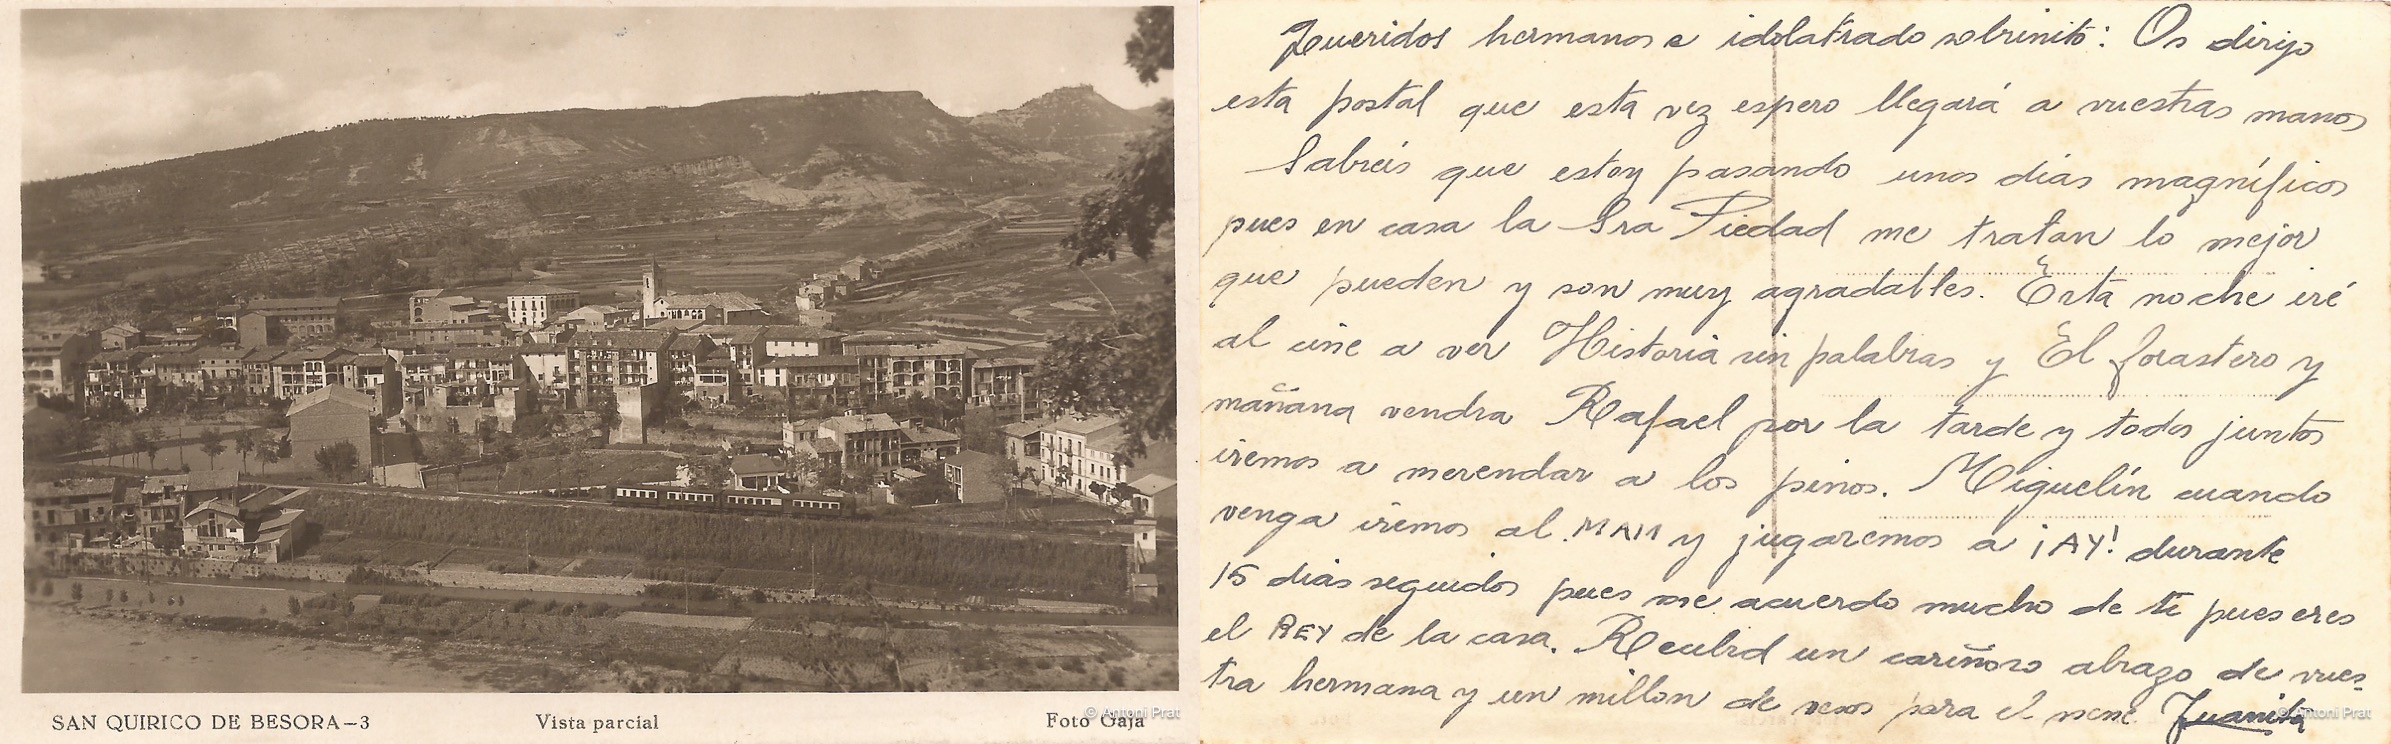 SAN QUIRICO DE BESORA-3
Vista parcial
Foto Gaja
© Antoni Prat
Queridos hermanos e idolatrado sobrinito: Os dirijo
esta postal que esta vez espero llegará a vuestras manos
Sabreis que estoy pasando unos dias magníficos
pues en casa la Sra Piedad me tratan lo mejor
que pueden y son muy agradables. Esta noche iré
al cine a ver Historia sin palabras y El forastero y
mañana vendra Rafael por la tarde y todos juntos
iremos a merendar a los pinos. Miguelín cuando
venga iremos al MAM y jugaremos a ¡AY! durante
15 dias seguidos pues me acuerdo mucho de ti pues eres
el REY de la casa. Recibid un cariñoso abrazo de vues-
tra hermana y un millon de vesos para el nene Juanita
© Antoni Prat